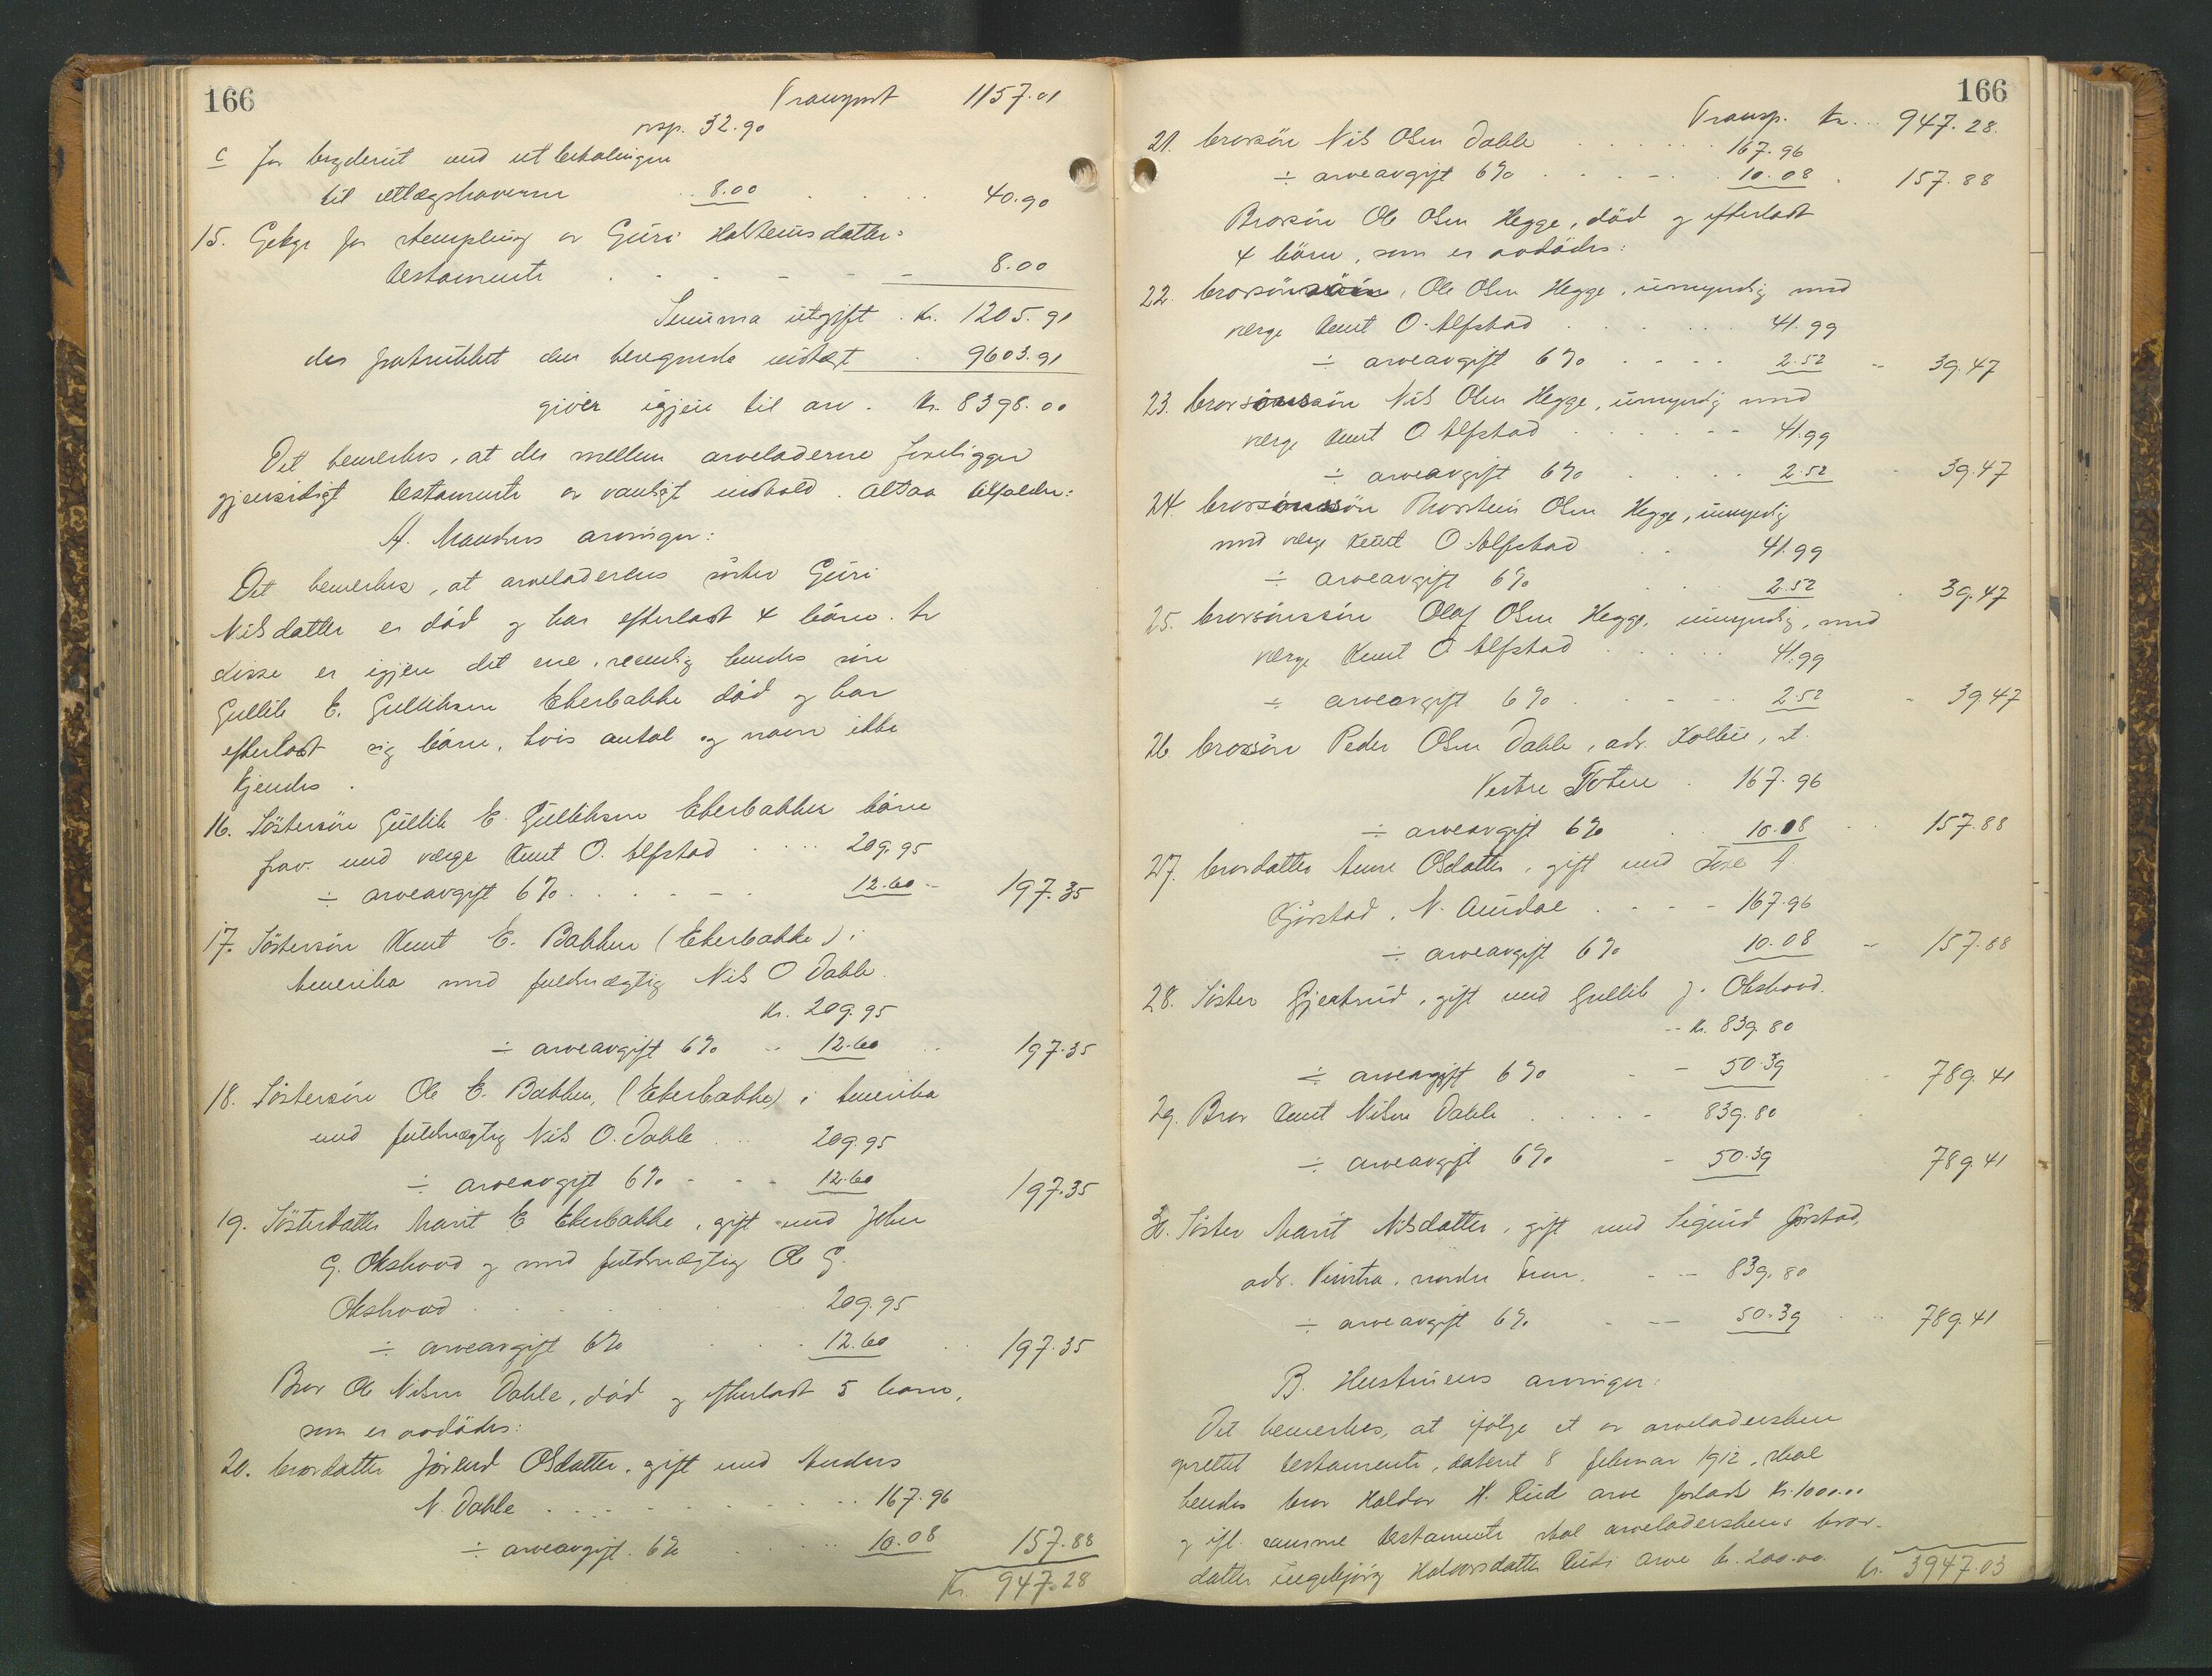 166
Transport 1157.01
resp. 32.90
c for bryderiet med utbetalingen
til utlægshaverne 8.00 40.90
15. Gebyr for stempling av Guri Halsteinsdatters
testamente 8.00
Summa utgift Kr. 1205.91
der fratrukket den beregnede indtægt 9603.91
giver igjen til arv. Kr. 8398.00
Det bemerkes, at der mellem arveladerne foreligger
gjensidigt testamente av vanligt indhold. Altsaa tilfalder:
A. Mandens arvinger:
Det bemerkes, at arveladerens søster Guri
Nilsdatter er död og har efterladt 4 börn. Av
disse er igjen det ene, nemlig hendes sön
Gullik E. Gulliksen Ekerbakke död og har
efterladt sig börn, hvis antal og navn ikke
kjendes.
16. Söstersön Gullik E. Gulliksen Ekerbakkes börn
frav. med verge Knut O. Alfstad 209.95
÷ arveavgift 6% 12.60 197.35
17. Söstersön Knut E. Bakken (Ekerbakke) i
Amerika med fuldmægtig Nils O Dahle.
Kr. 209.95
÷ arveavgift 6% 12.60 197.35
18. Söstersön Ole E. Bakken, (Ekerbakke) i Amerika
med fuldmægtig Nils O. Dahle 209.95
÷ arveavgift 6% 12.60 197.35
19. Søsterdatter Marit E Ekerbakke, gift med John
G. Okshovd og med fuldmægtig Ole G.
Okshovd 209.95
÷ arveavgift 6% 12.60 197.35
Bror Ole Nilsen Dahle, död og efterladt 5 barn,
som er avdödes:
20. brordatter Jörend Olsdatter, gift med Anders
N. Dahle 167.96
÷ arveavgift. 6% 10.08 157.88
Kr. 947.28
166
Transp. Kr. 947.28.
21. brorsön Nils Olsen Dahle 167.96
÷ arveavgift 6% 10.08 157.88
Brorsön Ole Olsen Hegge, död og efterladt
4 börn, som er avdödes:
22. brorsönssön, Ole Olsen Hegge, umyndig med
verge Knut O. Alfstad 41.99
÷ arveavgift 6% 2.52 39.47
23. brorsönssön Nils Olsen Hegge, umyndig med
verge Knut O Alfstad 41.99
÷ arveavgift 6% 2.52 39.47
24. brorsönssön Thorstein Olsen Hegge, umyndig
med verge Knut O. Alfstad 41.99
÷ arveavgift 6% 2.52 39.47
25. brorsönssön Olaf Olsen Hegge, umyndig, med
verge Knut O Alfstad 41.99
÷ arveavgift 6% 2.52 39.47
26. brorsön Peder Olsen Dahle, adr. Kolbu, st.
Vestre Toten 167.96
÷ arveavgift 6% 10.08 157.88
27. brordatter Anne Olsdatter, gift med Tore A.
Kjörstad, N. Aurdal 167.96
÷ arveavgift 6% 10.08 157.88
28. Söster Gjertrud, gift med Gullik J. Okshovd.
Kr. 839.80
÷ arveavgift 6% 50.39 789.41
29. Bror Knut Nilsen Dahle 839.80
÷ arveavgift 6% 50.39 789.41
30. Söster Marit Nilsdatter, gift med Sigurd Jörstad,
adr. Vinstra, nordre Fron. 839.80
÷ arveavgift 6% 50.39 789.41
B. Hustruens arvinger:
Det bemerkes, at ifölge et av arveladersken
oprettet testamente, datert 8 februar 1912, skal
hendes bror Haldor H. Rud arve forlods Kr. 1000.00
og ifl. samme testamente skal arveladerskens bror-
datter Ingebjörg Halvorsdatter Rud arve kr. 200.00.
kr. 3947.03